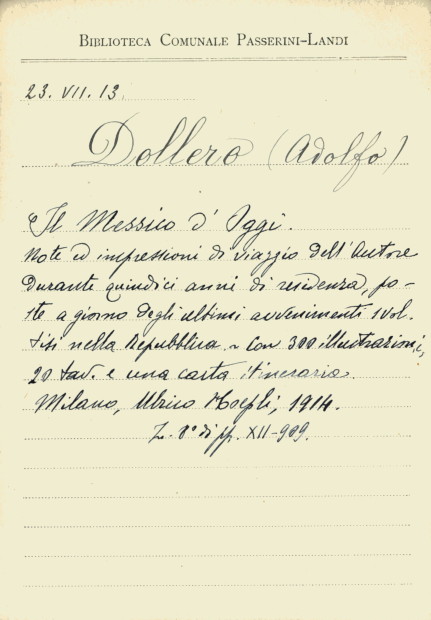 BIBLIOTECA COMUNALE PASSERINI-LANDI
23. VII. 13.
Dollero (Adolfo)
Il Messico d' Oggi.
Note ed impressioni di viaggio dell'Autore
durante quindici anni di residenza, po-
ste a giorno degli ultimi avvenimenti svol-
tisi nella Repubblica ~ con 300 illustrazioni,
20 tav. e una carta itineraria.
Milano, Ulrico Hoepli, 1914.
in 8° di pp. XII-909.